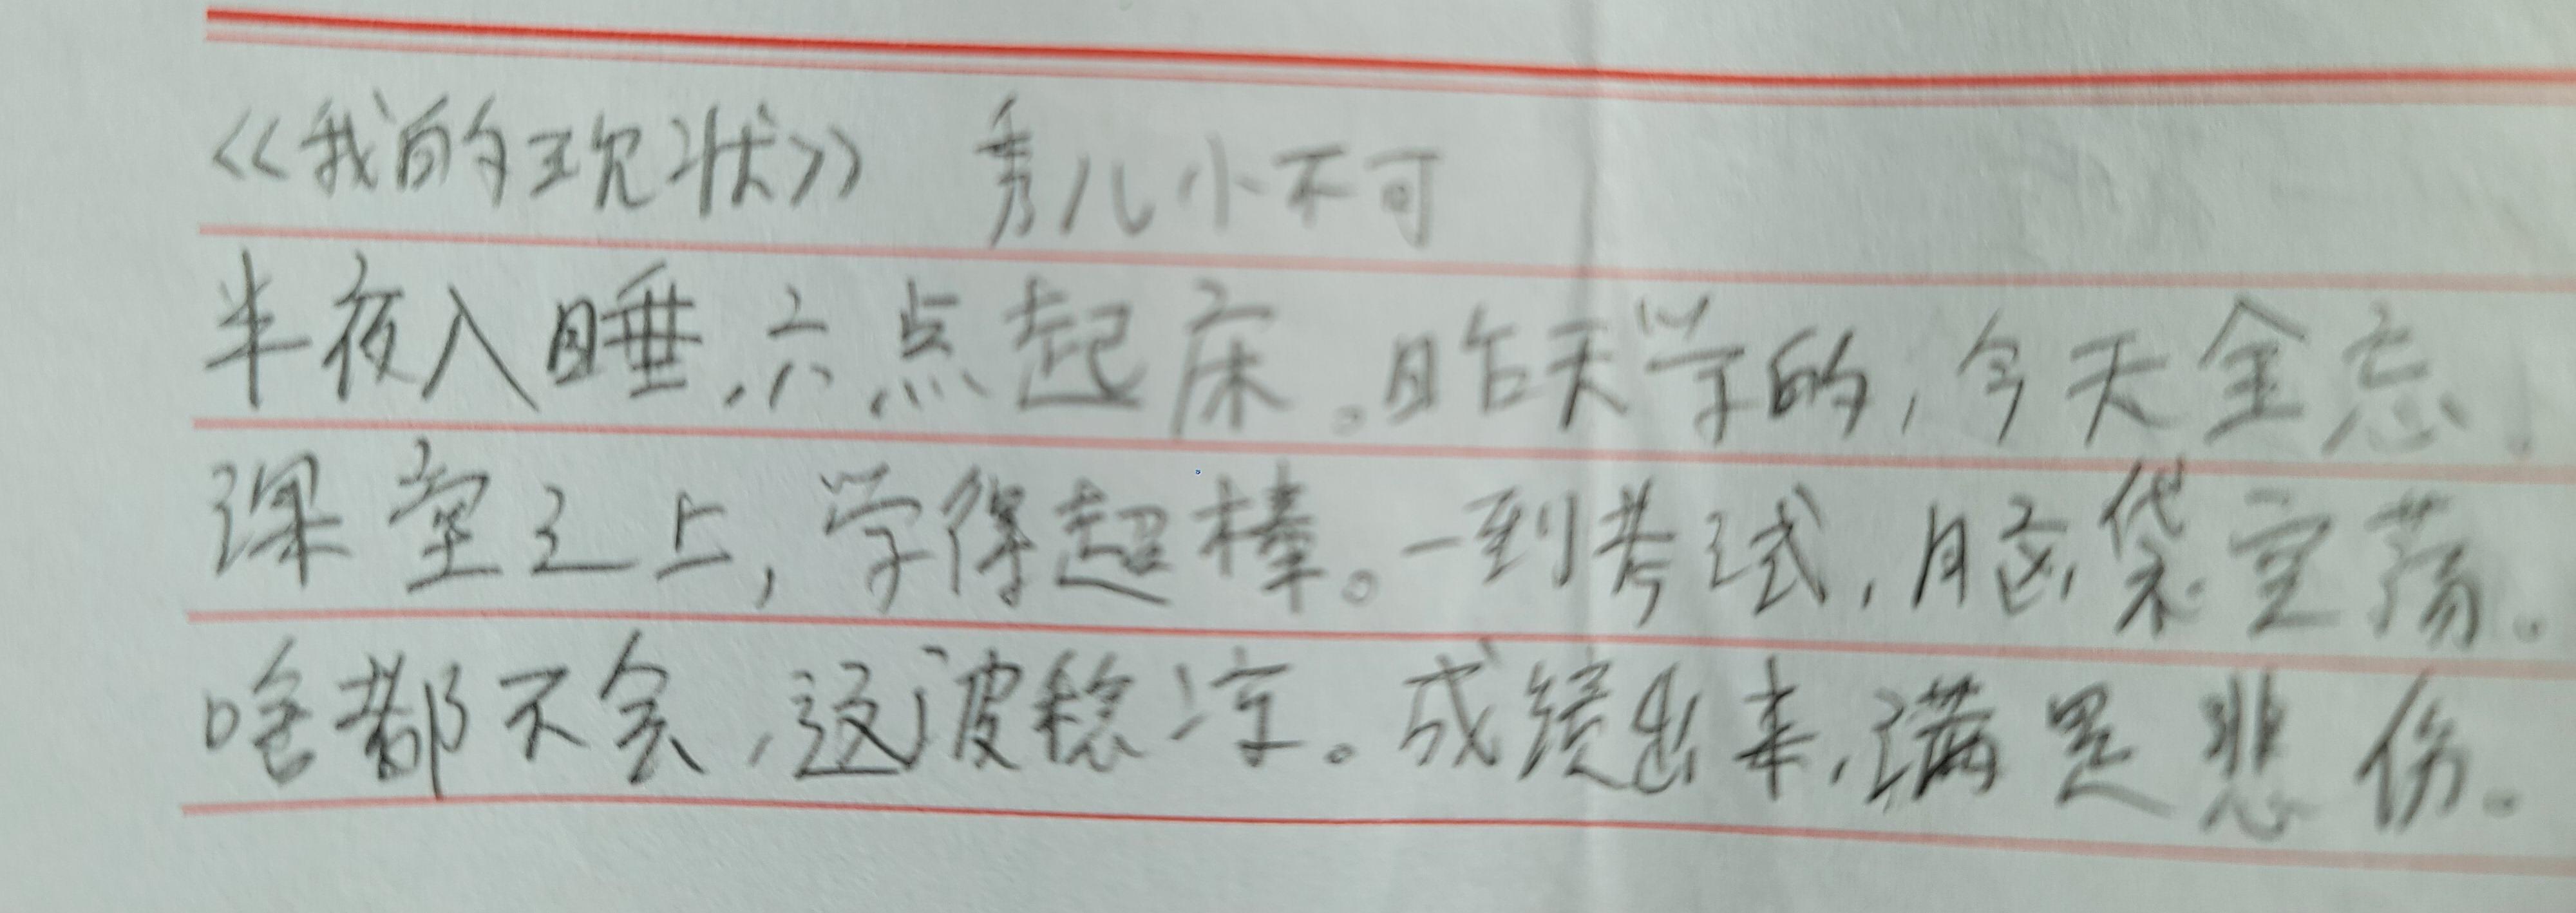 《我的现状》 秀儿小不可
半夜入睡,六点起床。昨天学的,今天全忘。
课堂之上,学得超棒。一到考试,脑袋空荡。
啥都不会,这波稳凉。成绩出来,满是悲伤。